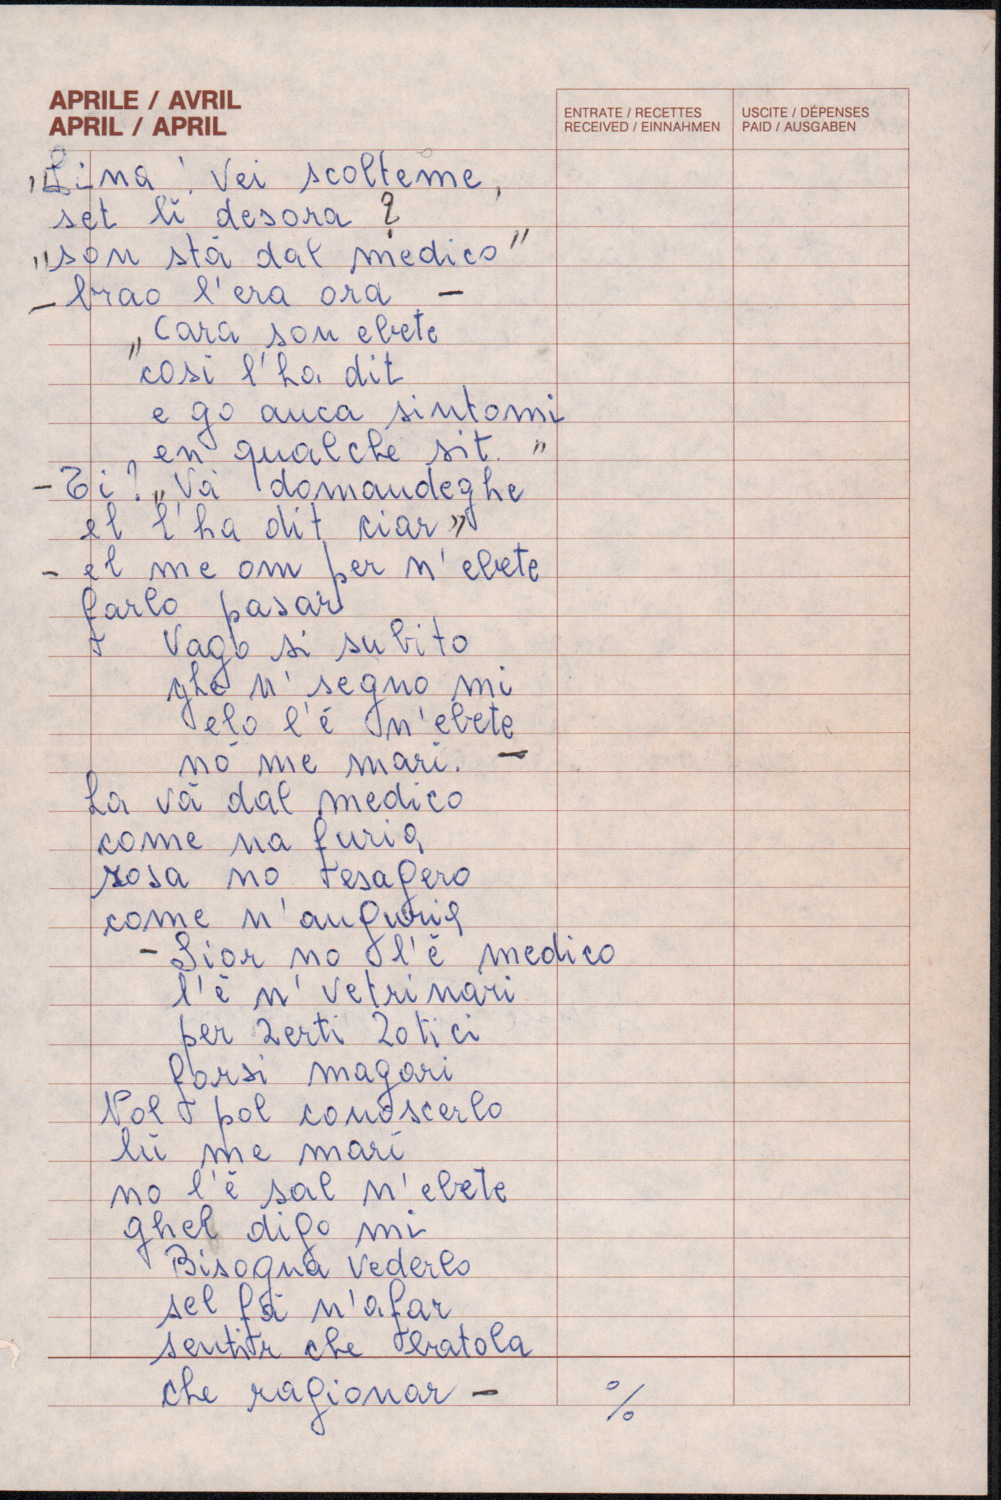 APRILE / AVRIL
APRIL / APRIL
ENTRATE / RECETTES
RECEIVED / EINNAHMEN
USCITE / DÉPENSES
PAID / AUSGABEN
"Lina! Vei scolteme,
set li desora?
"son stà dal medico"
- brao l'era ora -
"Cara son ebete
"così l'ha dit
e go anca sintomi
en qualche sit."
- Ti? "Và domandeghe
el l'ha dit ciar"
- el me om per n'ebete
farlo pasar
Vago si subito
ghè n' segno mi
elo l'è n'ebete
nò me marì. -
La và dal medico
come na furia
rosa no esagero
come n'anguria
- Sior no l'è medico
l'è n' vetrinari
per zerti zotici
forsi magari
Nol pol conoscerlo
lù me marì
no l'è sal n'ebete
ghel digo mi
Bisogna vederlo
sel fà n'afar
sentir che bratola
che ragionar -
%